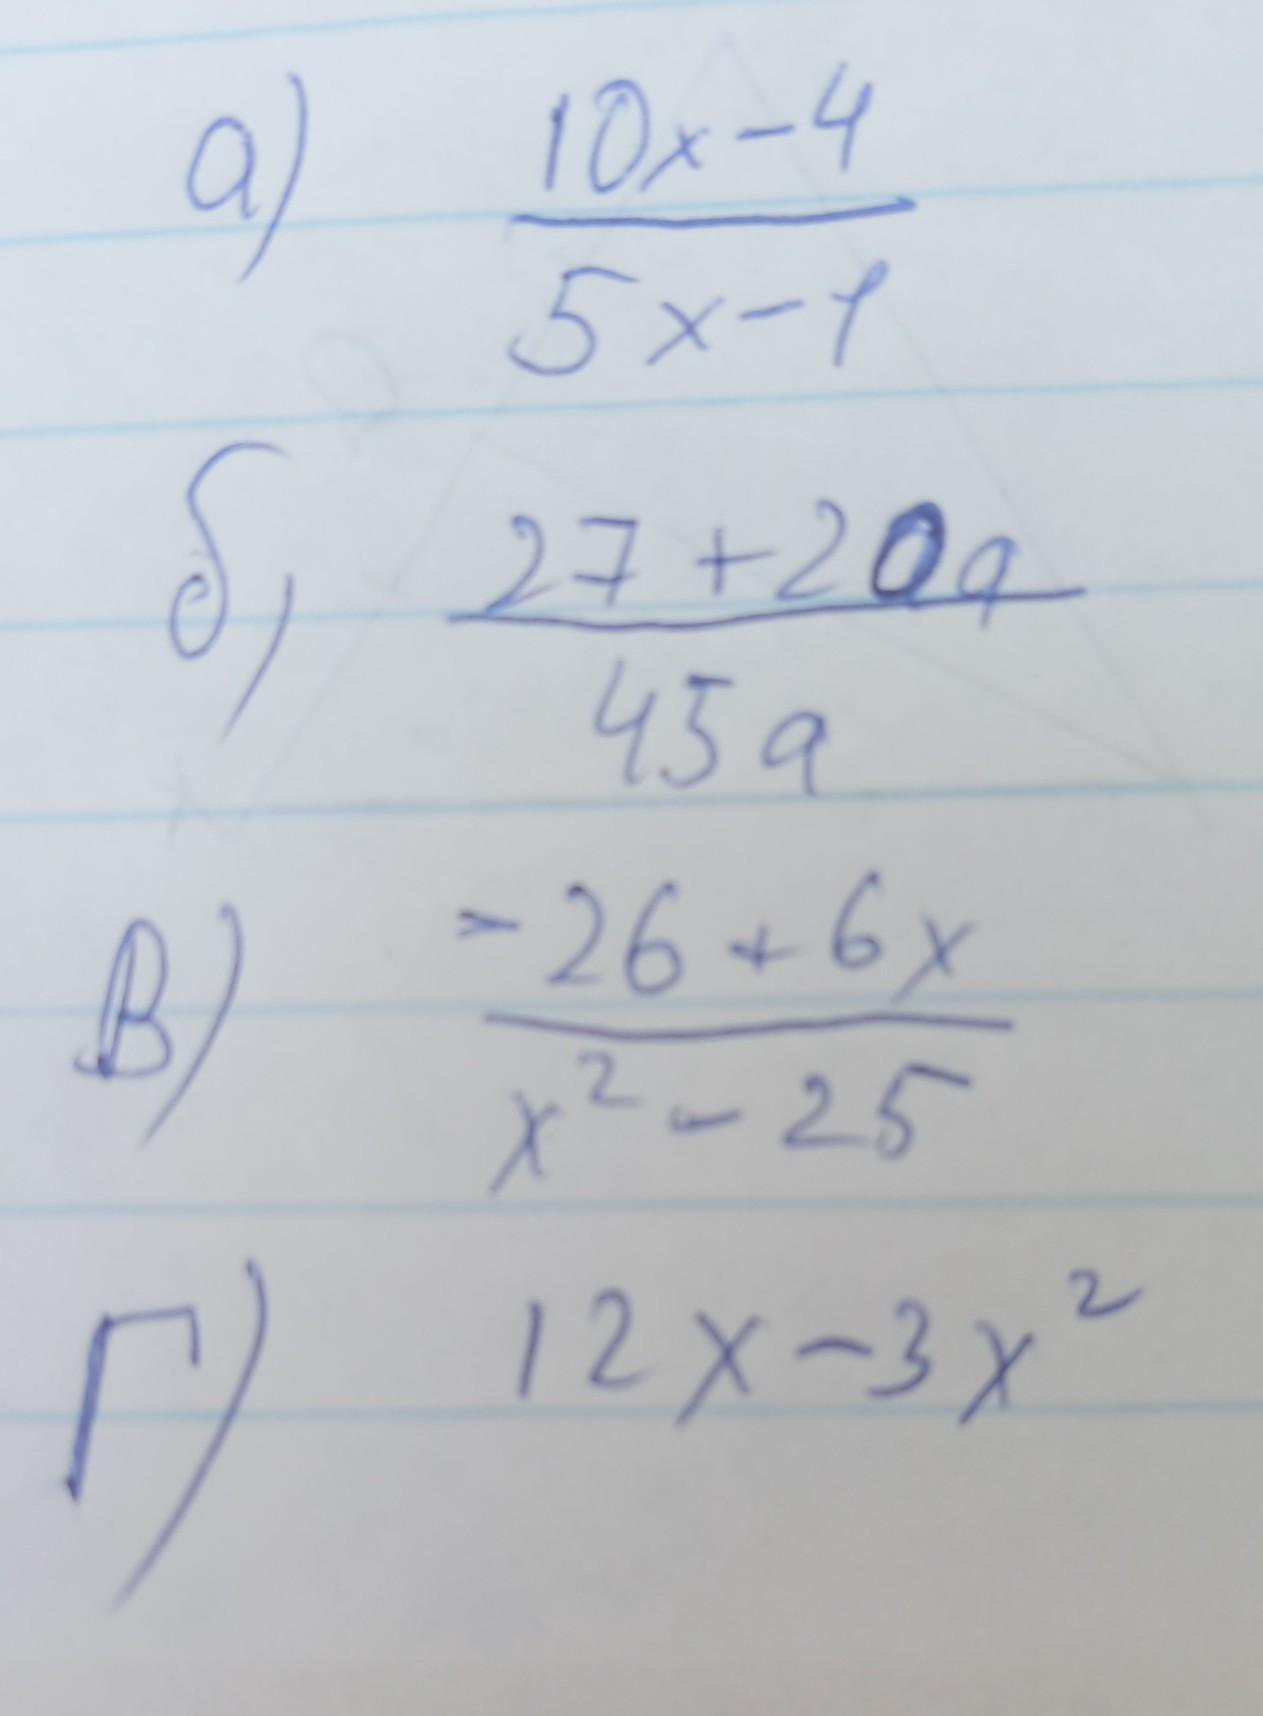 а) 10x-4
5x-1
б) 27+20a
45a
В) -26+6x
x²-25
Г) 12x-3x²